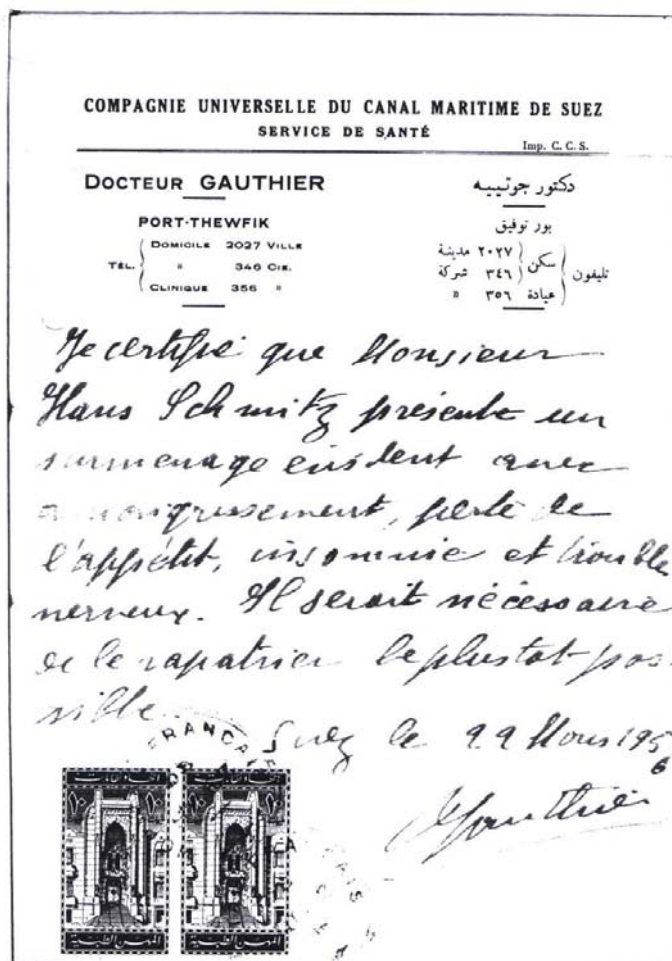 COMPAGNIE UNIVERSELLE DU CANAL MARITIME DE SUEZ
SERVICE DE SANTÉ
Imp. C. C. S.
DOCTEUR GAUTHIER
PORT-THEWFIK
TÉL. DOMICILE 2027 VILLE
" 346 CIE.
CLINIQUE 356 "
دكتور جوتييه
بور توفيق
تليفون سكن ٢٠٢٧ مدينة
٣٤٦ شركة
عيادة ٣٥٦ "
Je certifie que Monsieur
Hans Schmitz présente un
surmenage évident avec
amaigrissement, perte de
l'appétit, insomnie et trouble
nerveux. Il serait nécessaire
de le rapatrier le plus tot pos-
sible.
Suez le 29 Mars 1956
Gauthier
FRANCA
١٠ ١٠
المهن الطبية المهن الطبية